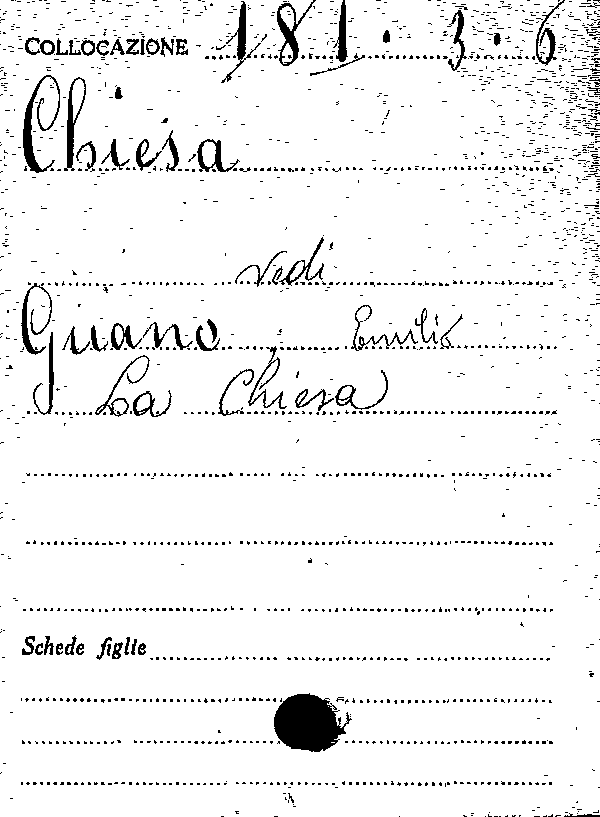 COLLOCAZIONE 181.3.6
Chiesa
vedi
Guano, Emilio
La Chiesa
Schede figlie